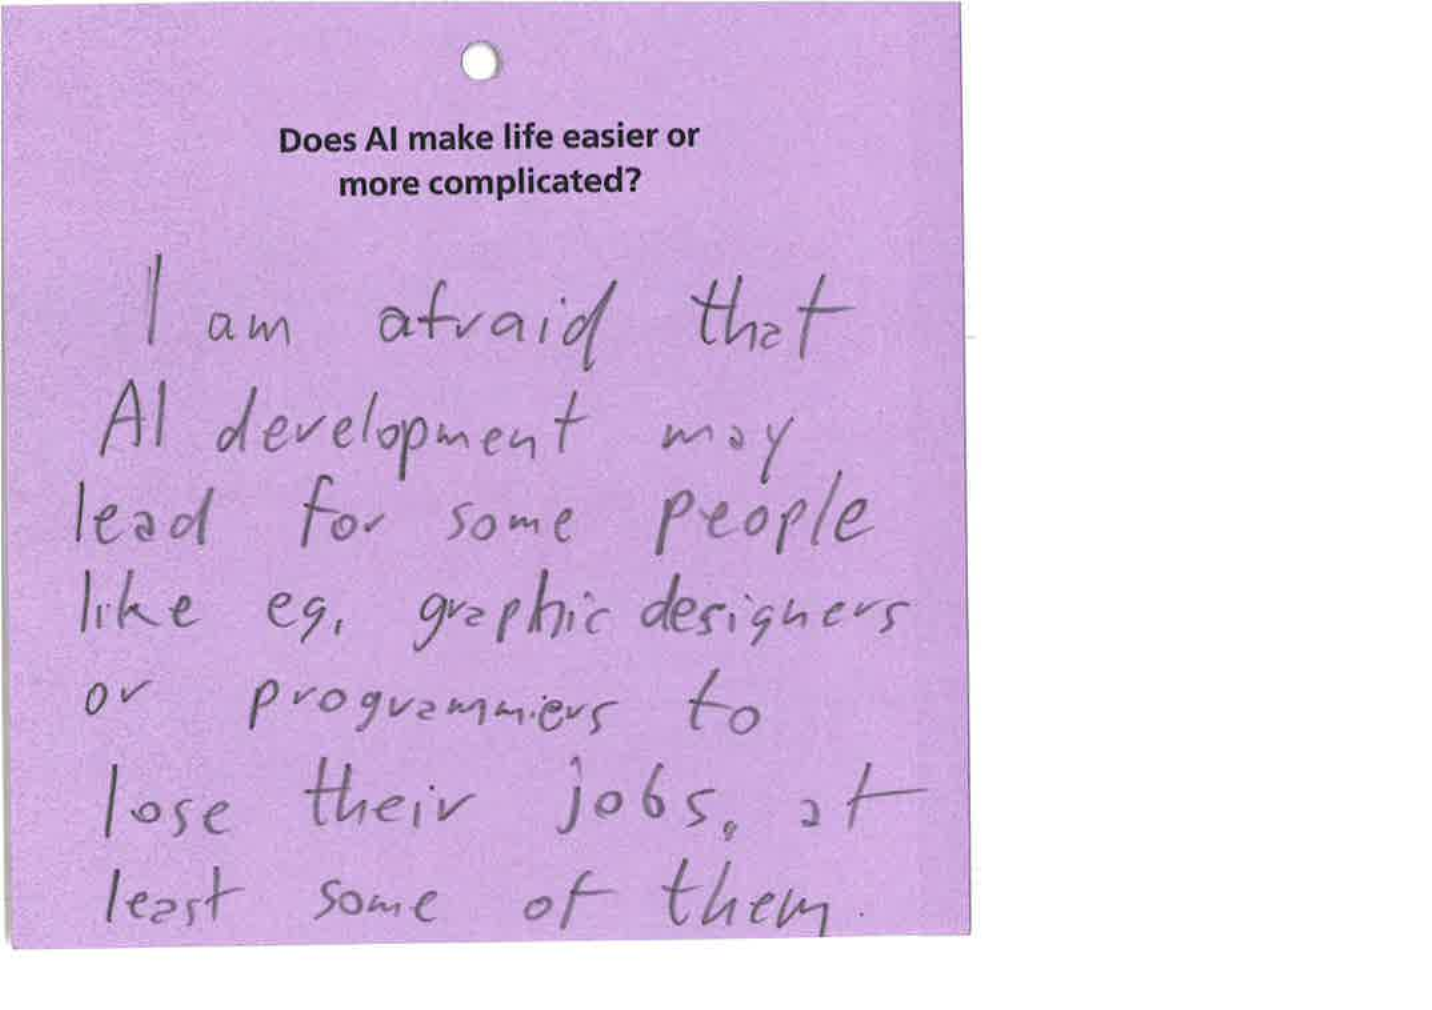 Does AI make life easier or
more complicated?
I am afraid that
AI development may
lead for some people
like eg. graphic designers
or programmiers to
lose their jobs, at
least some of them.